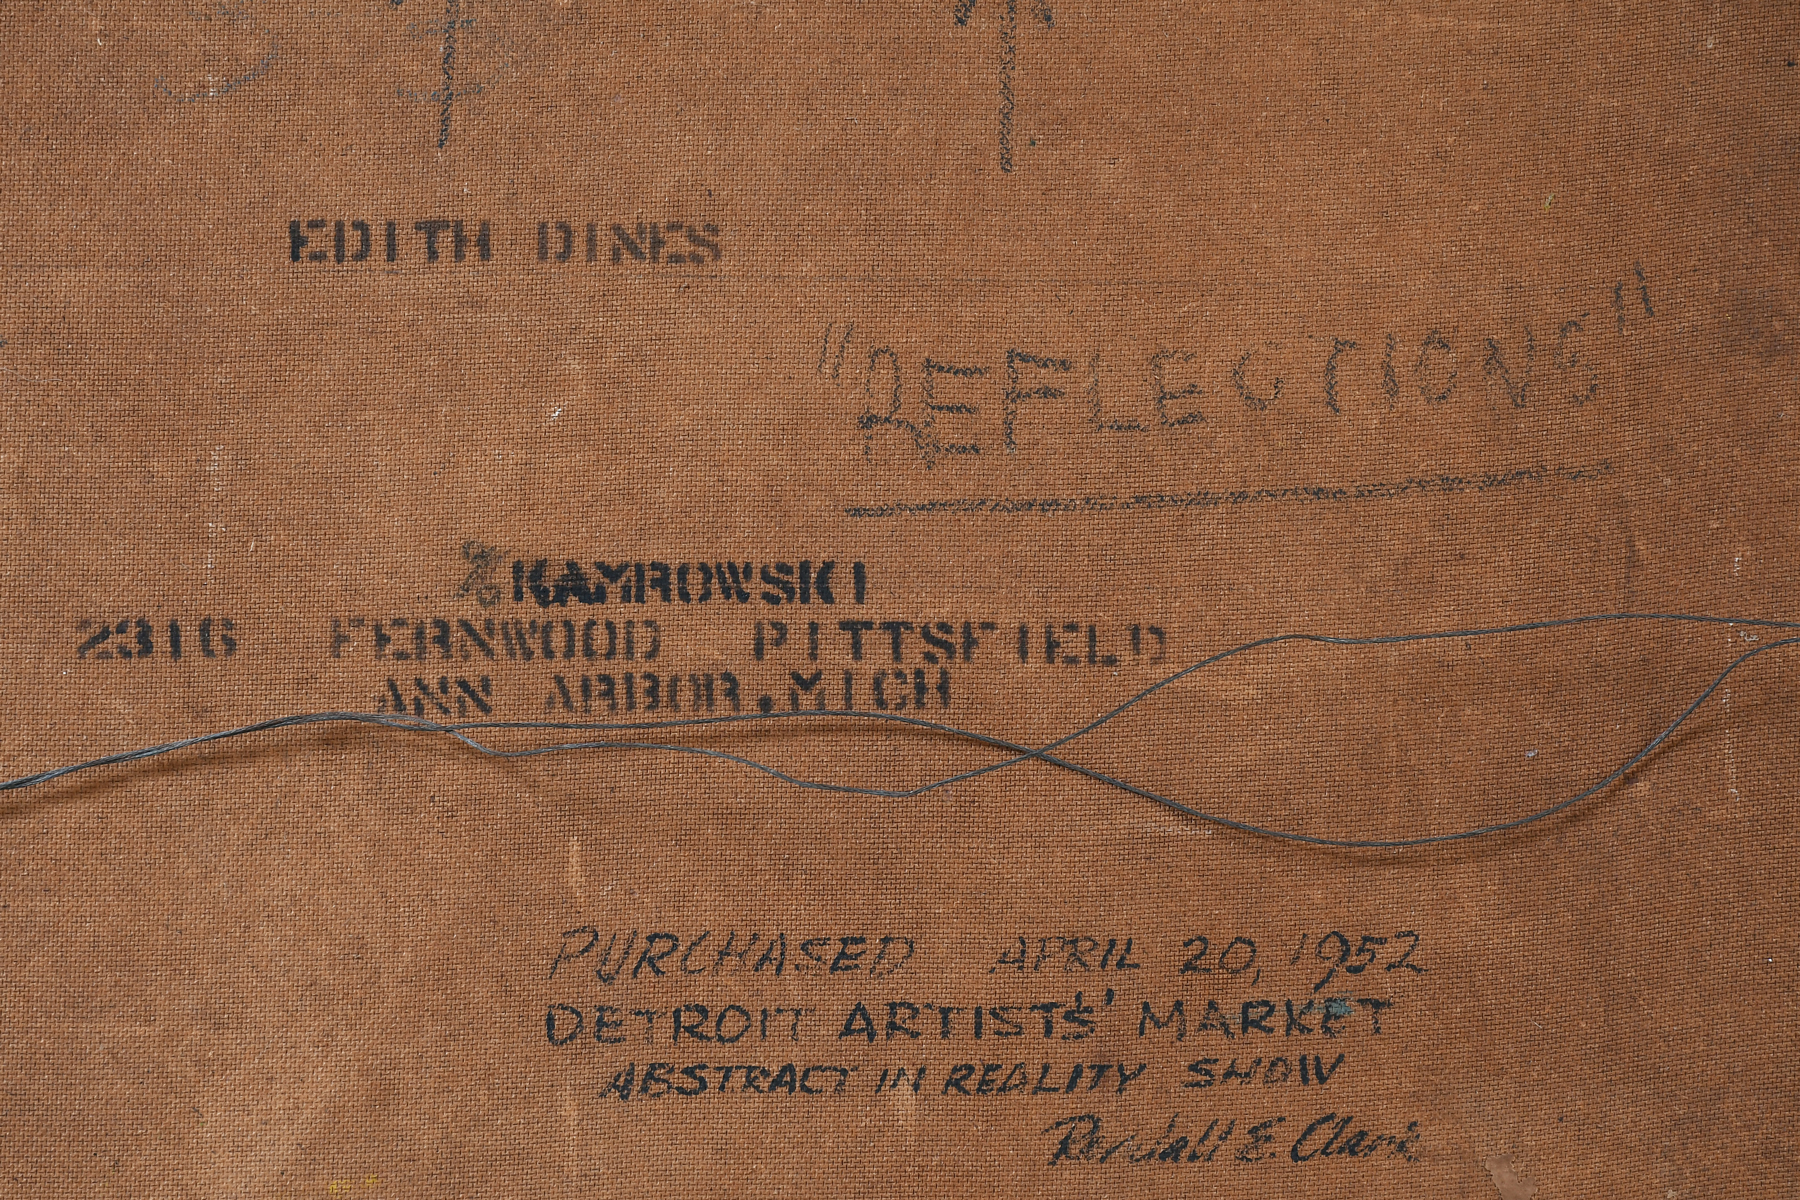 EDITH DINES
"REFLECTIONS"
% KAMROWSKI
2316 FERNWOOD PITTSFIELD
ANN ARBOR.MICH
PURCHASED APRIL 20, 1952
DETROIT ARTISTS' MARKET
ABSTRACT IN REALITY SHOW
Randall E. Clark